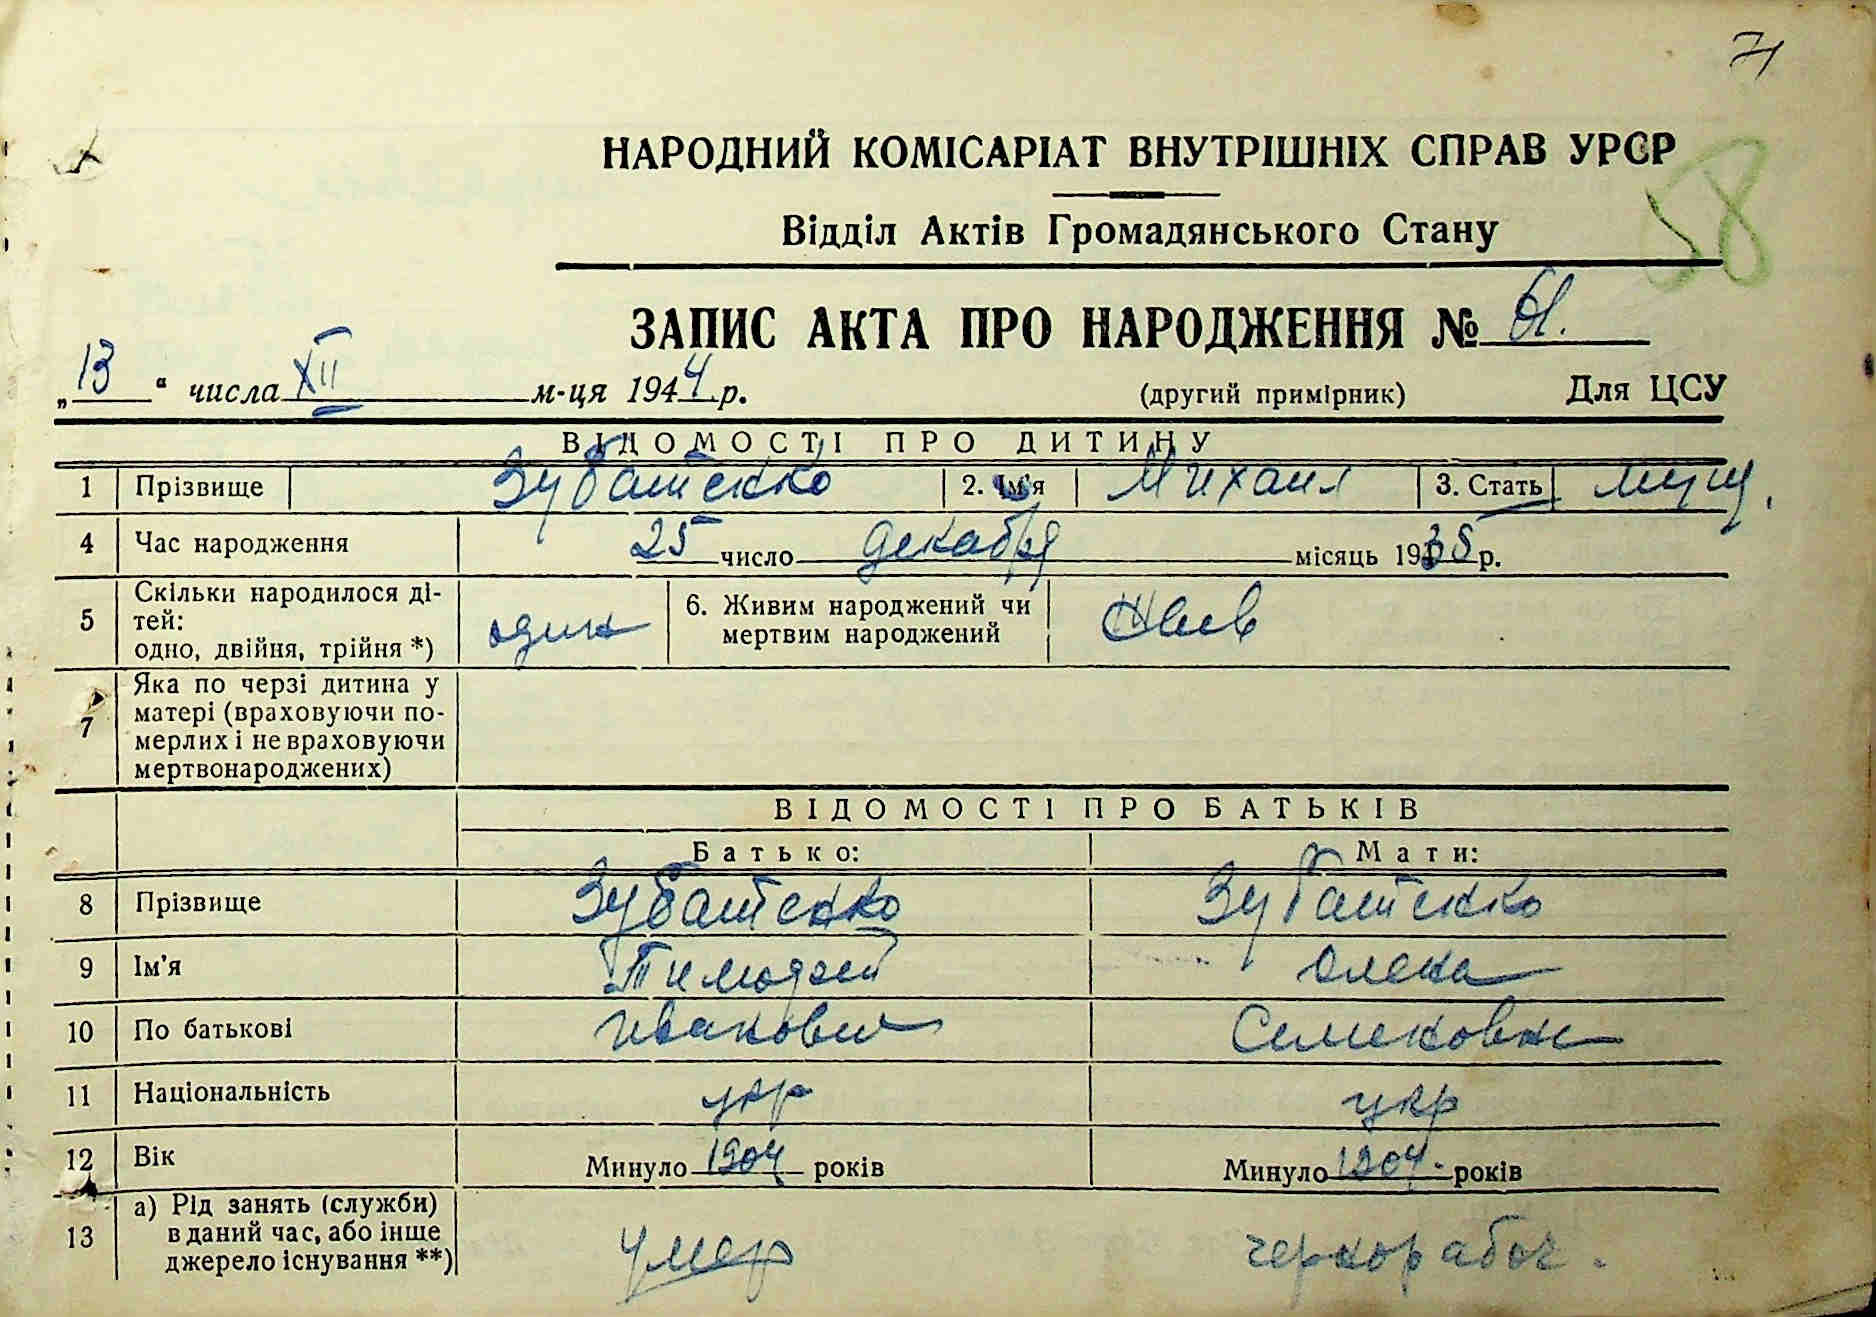 71
НАРОДНИЙ КОМІСАРІАТ ВНУТРІШНІХ СПРАВ УРСР
58
Відділ Актів Громадянського Стану
ЗАПИС АКТА ПРО НАРОДЖЕННЯ № 61.
„ 13 “ числа XII м-ця 1944 р. (другий примірник) Для ЦСУ
ВІДОМОСТІ ПРО ДИТИНУ
1 Прізвище Зубатенко 2. Ім’я Михаил 3. Стать муж.
4 Час народження 25 число декабря місяць 1935 р.
5 Скільки народилося ді-
тей:
одно, двійня, трійня *) один 6. Живим народжений чи
мертвим народжений Жив
7 Яка по черзі дитина у
матері (враховуючи по-
мерлих і не враховуючи
мертвонароджених)
ВІДОМОСТІ ПРО БАТЬКІВ
Батько: Мати:
8 Прізвище Зубатенко Зубатенко
9 Ім’я Тимофей Олена
10 По батькові Иванович Семеновна
11 Національність укр укр
12 Вік Минуло 1904 років Минуло 1904. років
13 а) Рід занять (служби)
в даний час, або інше
джерело існування **) умер чернорабоч.